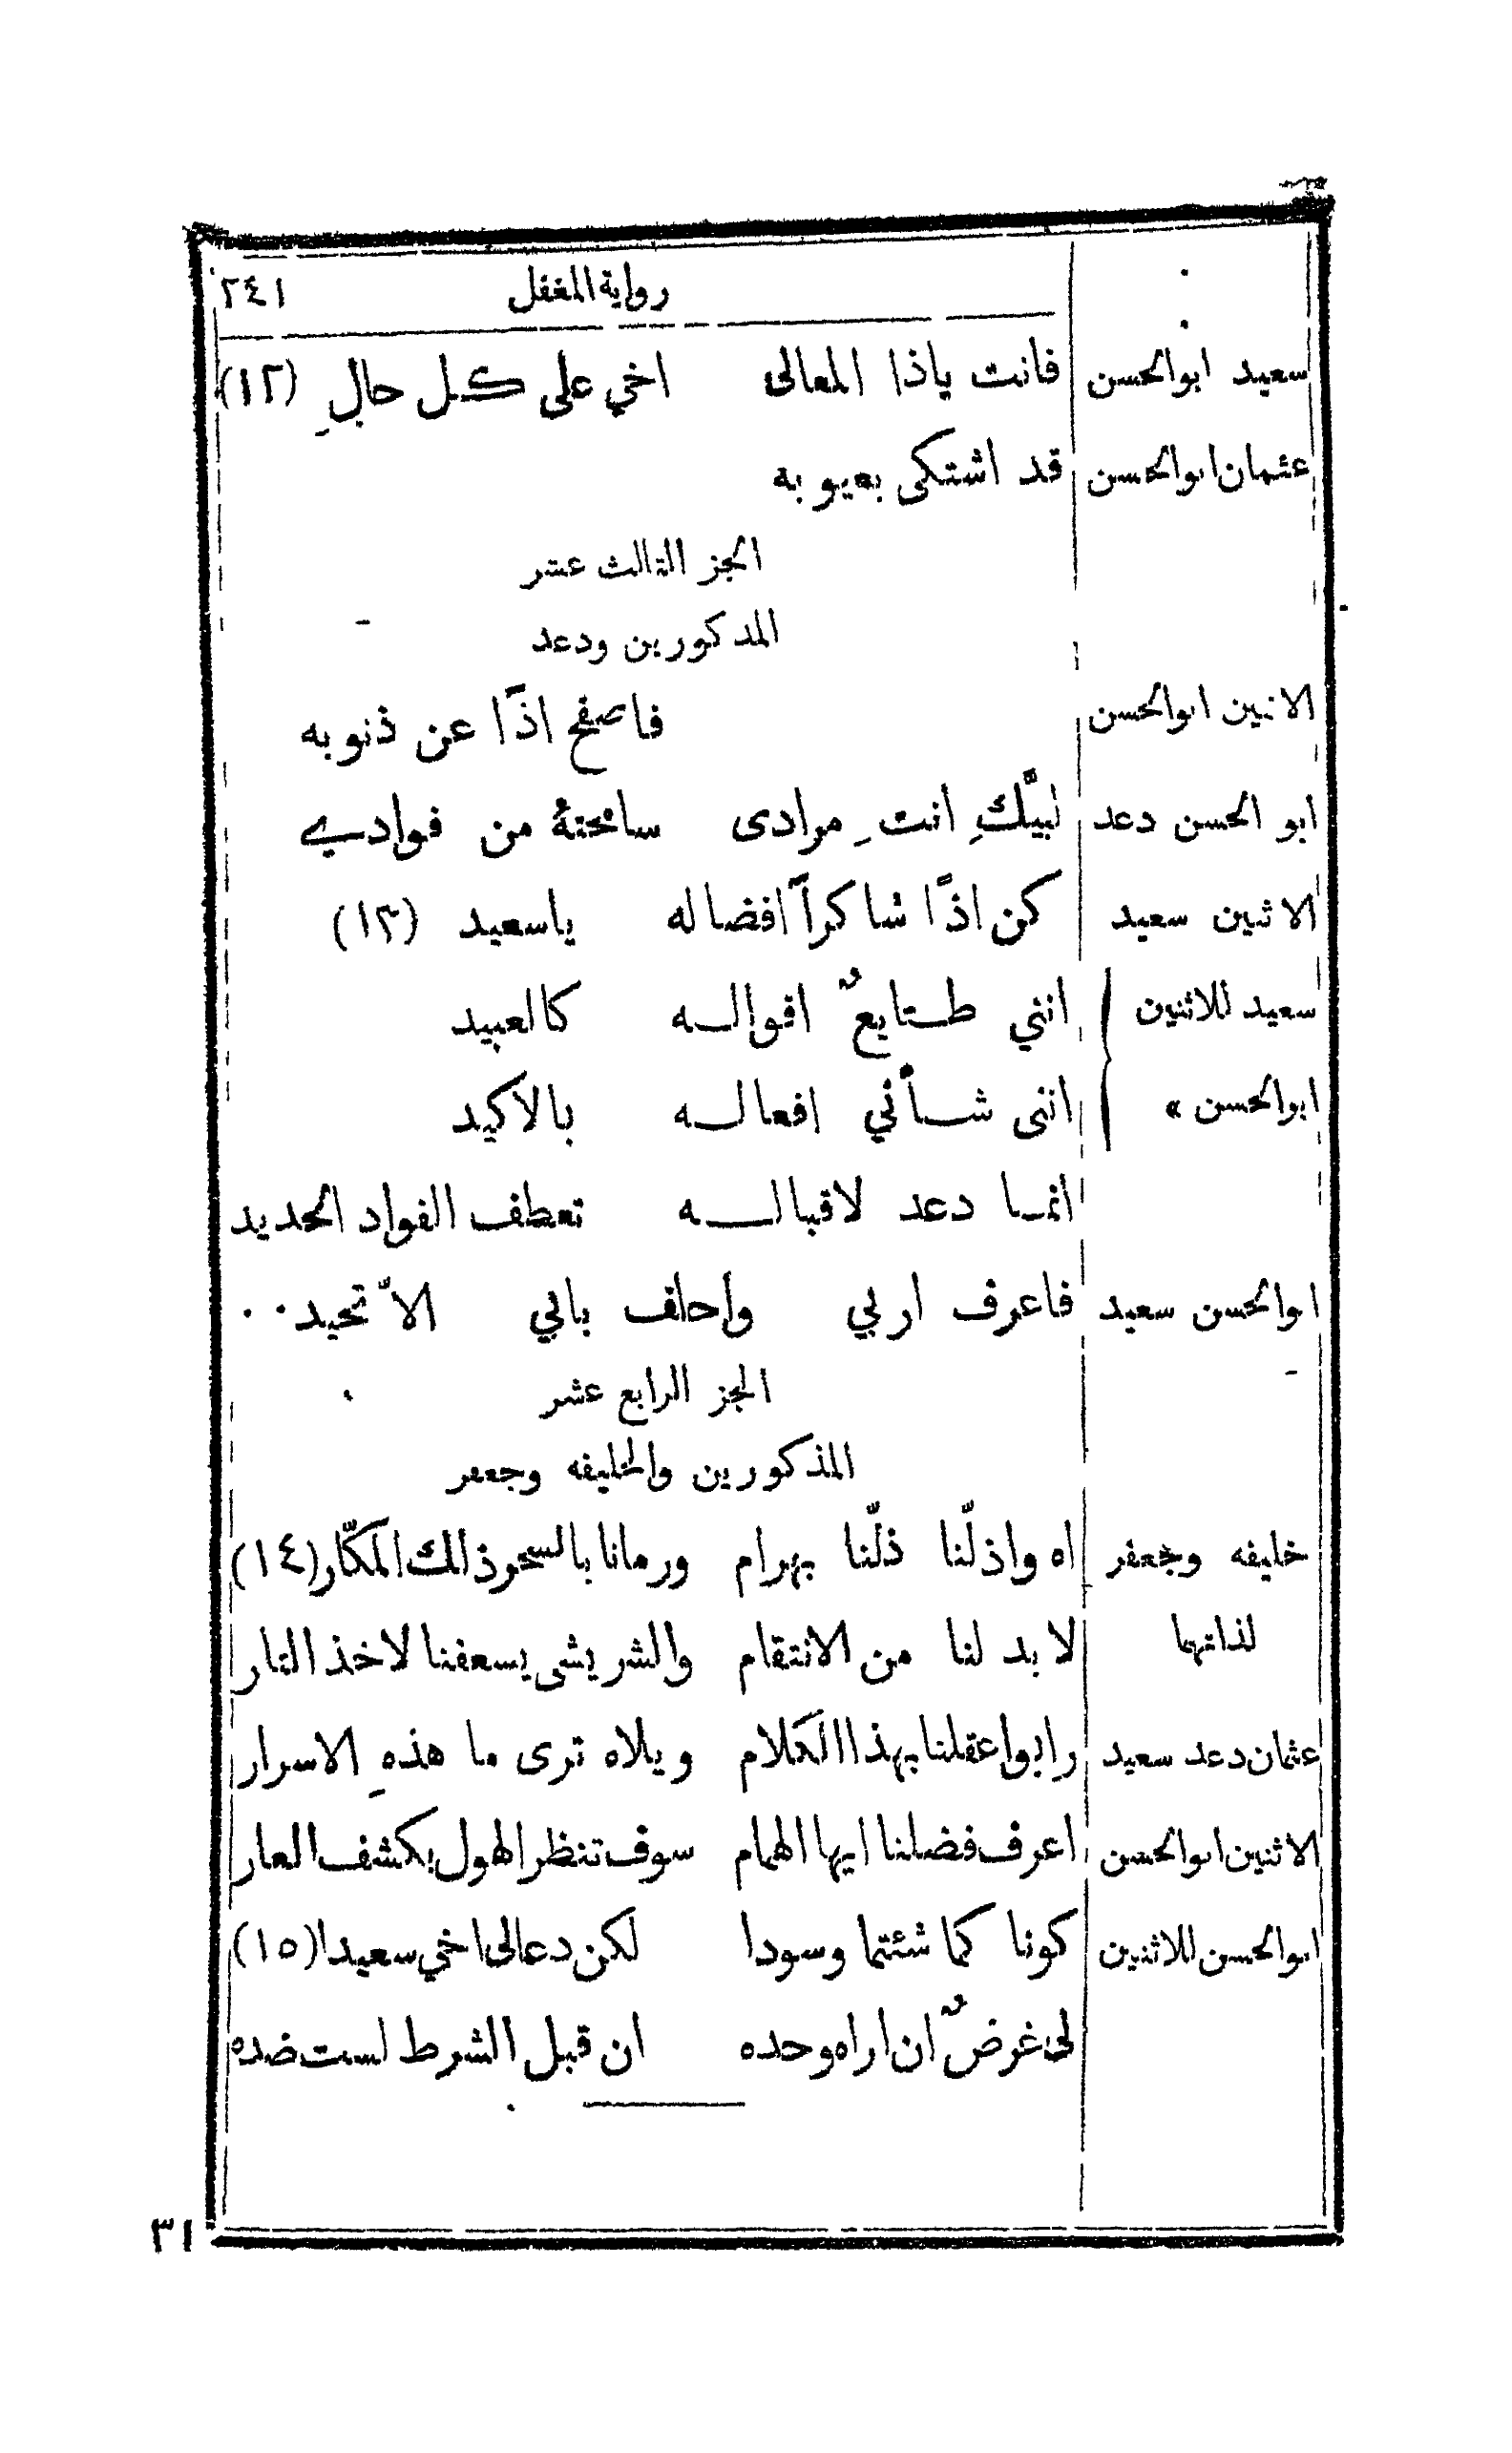 رواية المغفل ٢٤١
سعيد ابوالحسن فانت ياذا المعالى اخي على كل حالِ (١٢)
عثمان ابوالحسن قد اشتكى بعيوبه
الجز الثالث عشر
المذكورين ودعد
الاثنين ابوالحسن فاصفح اذًا عن ذنوبه
ابو الحسن دعد لبيَّكِ انتِ مرادى سامحتهُ من فوادي
الاثنين سعيد كن اذًا شاكراً افضاله ياسعيد (١٣)
سعيد للاثنين انني طايعٌ اقواله كالعبيد
ابوالحسن » اننى شأني افعاله بالاكيد
انما دعد لاقباله تعطف الفواد الحديد
ابوالحسن سعيد فاعرف اربي واحلف بابي الاّ تحيد٠٠
الجز الرابع عشر
المذكورين والخليفه وجعفر
خليفه وجعفر اه واذلّنا ذلّنا بهرام ورمانا بالسحر ذلك المكّار (١٤)
لذاتهما لا بد لنا من الانتقام والشريشى يسعفنا لاخذ الثار
عثمان دعد سعيد رابوا عقلنا بهذا الكلام ويلاه ترى ما هذهِ الاسرار
الاثنين ابوالحسن اعرف فضلنا ايها الهمام سوف تنظر الهول بكشف العار
ابوالحسن للاثنين كونا كما شئتما وسودا لكن دعالى اخي سعيدا (١٥)
لى غرضٌ ان اراه وحده ان قبل الشرط لست ضده
٣١